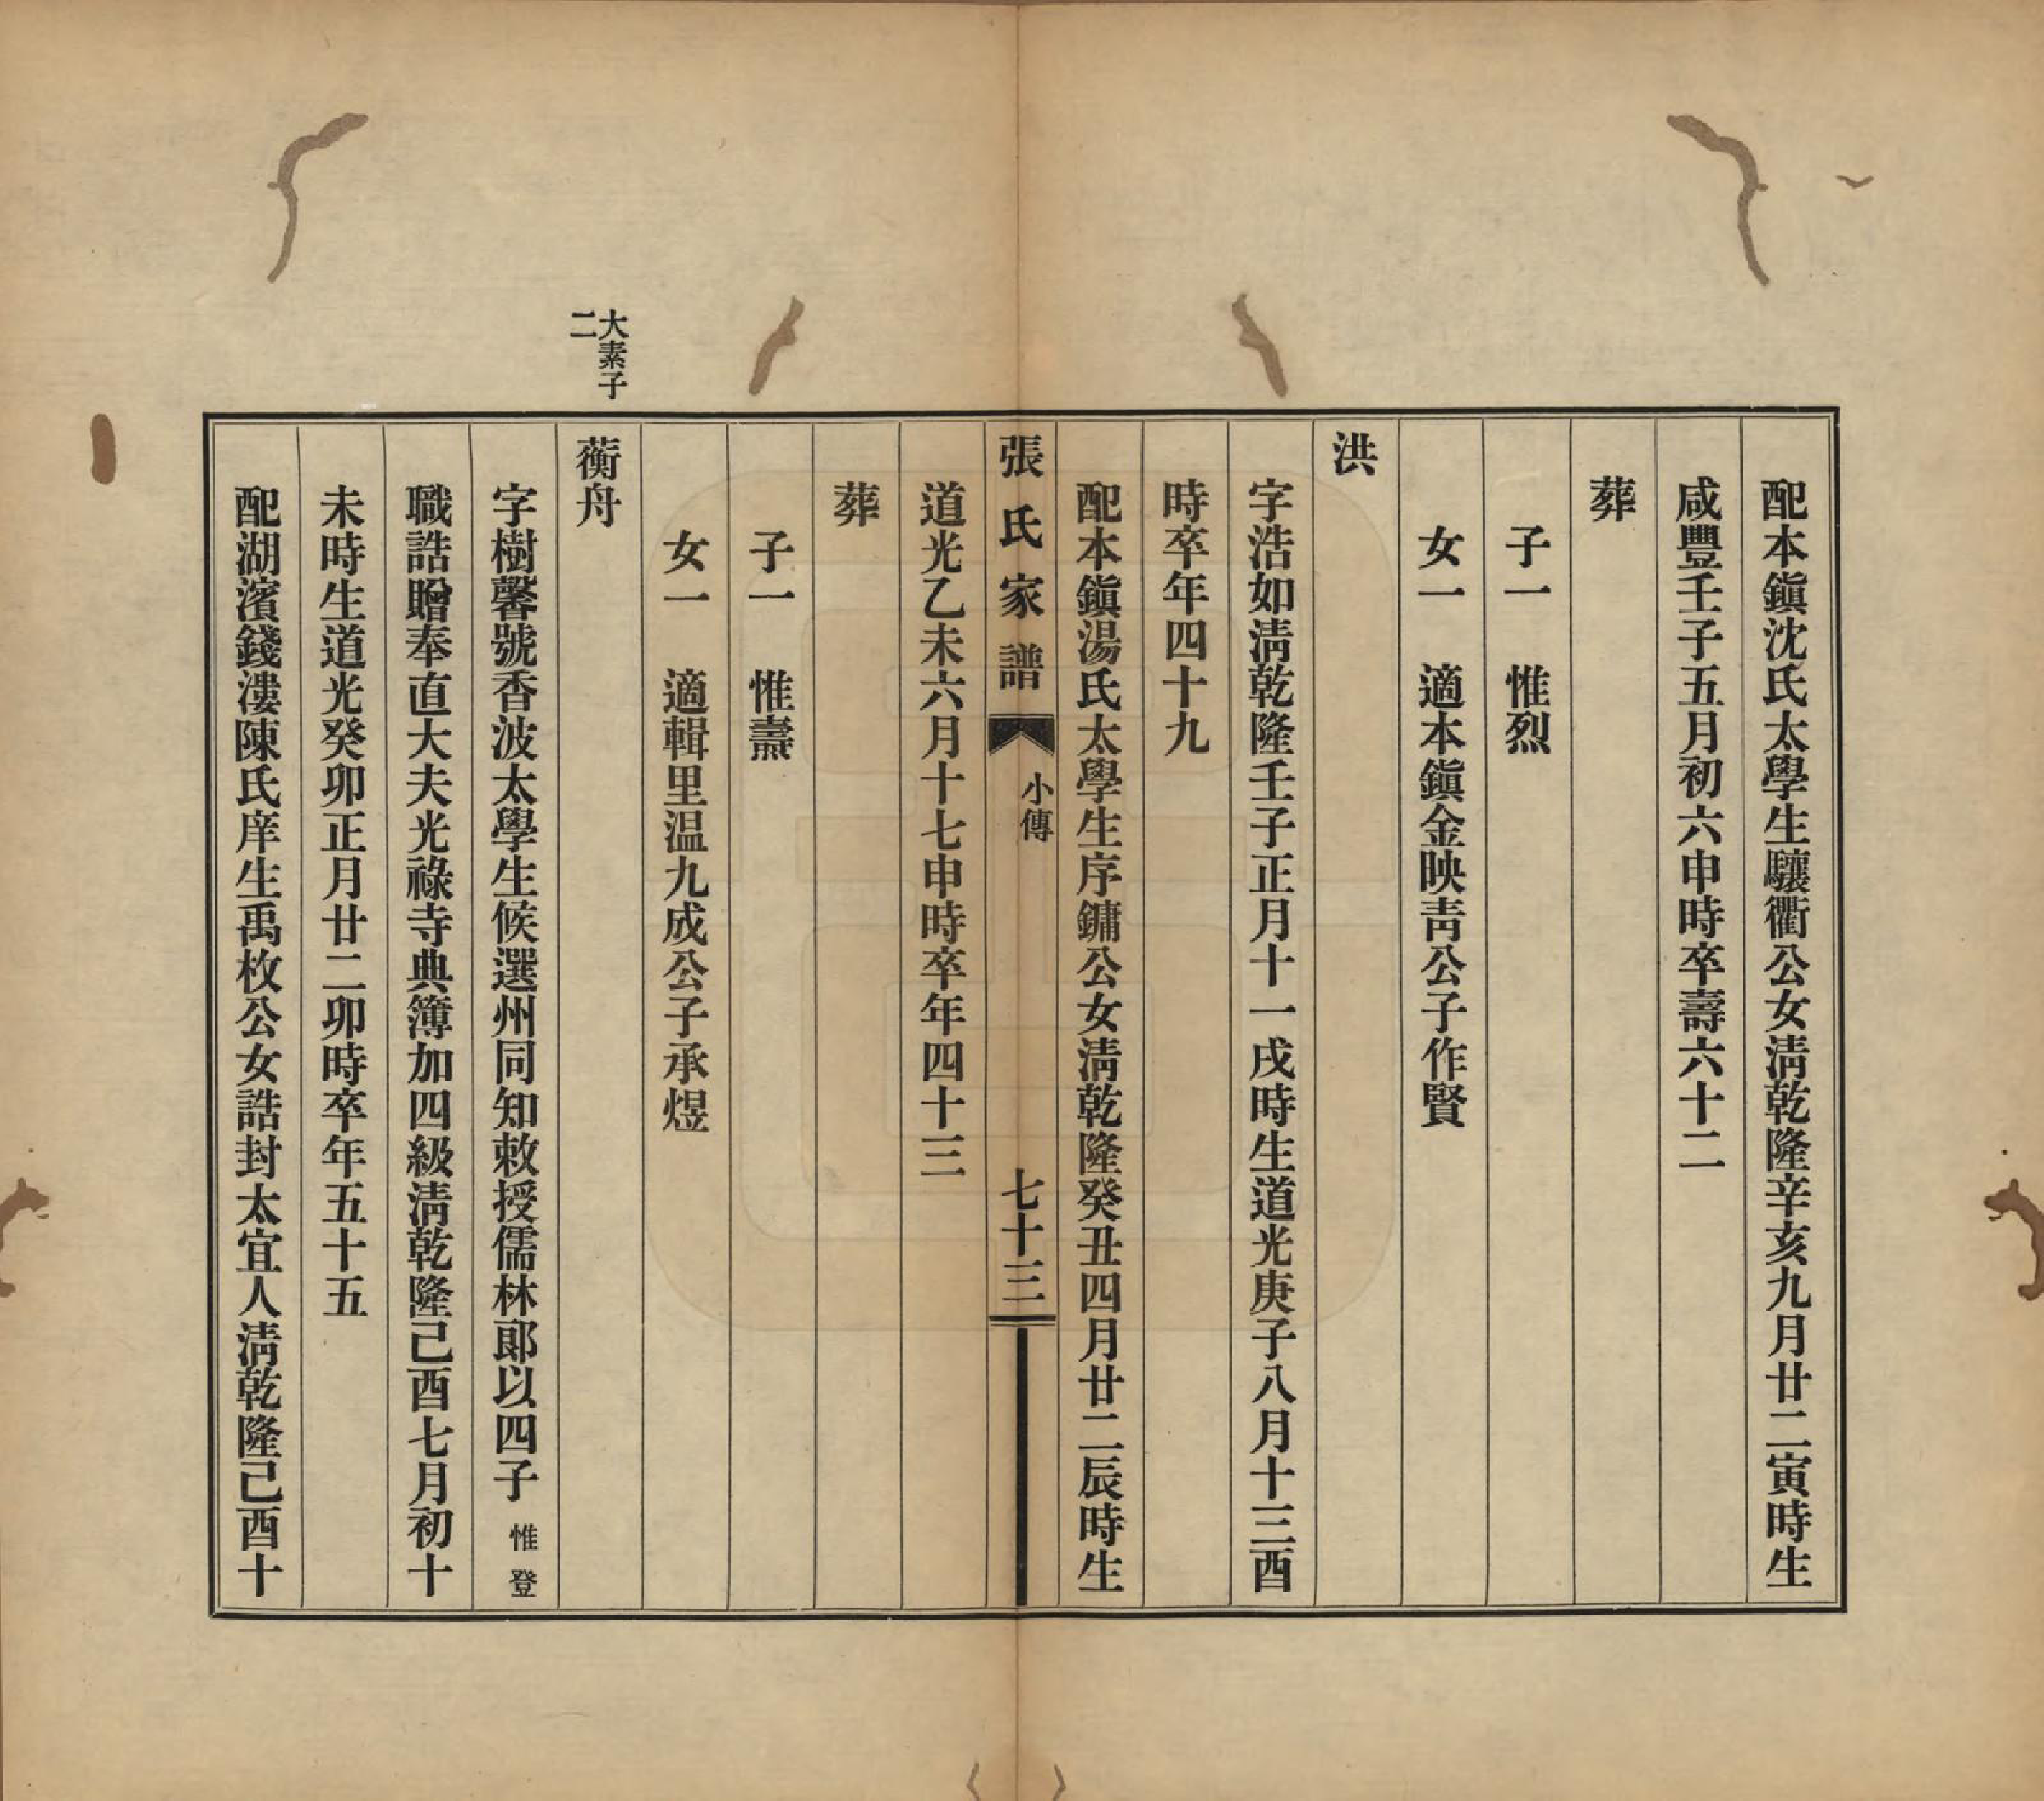 配本鎭沈氏太學生驤衢公女淸乾隆辛亥九月廿二寅時生
咸豐壬子五月初六申時卒壽六十二
葬
子一　惟烈
女一　適本鎭金映靑公子作賢
洪
字浩如淸乾隆壬子正月十一戌時生道光庚子八月十三酉
時卒年四十九
配本鎭湯氏太學生序鏞公女淸乾隆癸丑四月廿二辰時生
張氏家譜　小傳　七十三
道光乙未六月十七申時卒年四十三
葬
子一　惟燾
女一　適輯里温九成公子承煜
大素子
二
蘅舟
字樹馨號香波太學生候選州同知敕授儒林郞以四子惟登
職誥贈奉直大夫光祿寺典簿加四級淸乾隆己酉七月初十
未時生道光癸卯正月廿二卯時卒年五十五
配湖濱錢漊陳氏庠生禹枚公女誥封太宜人淸乾隆己酉十